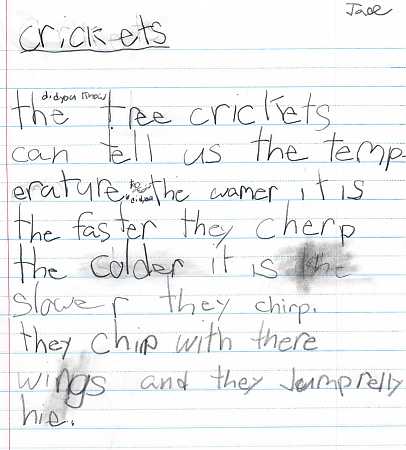 Jade
crickets
did you know
the tree crickets
can tell us the temp-
erature. the wamer it is
the faster they cherp
the colder it is the
slower they chirp.
they chip with there
wings and they Jump relly
hie.